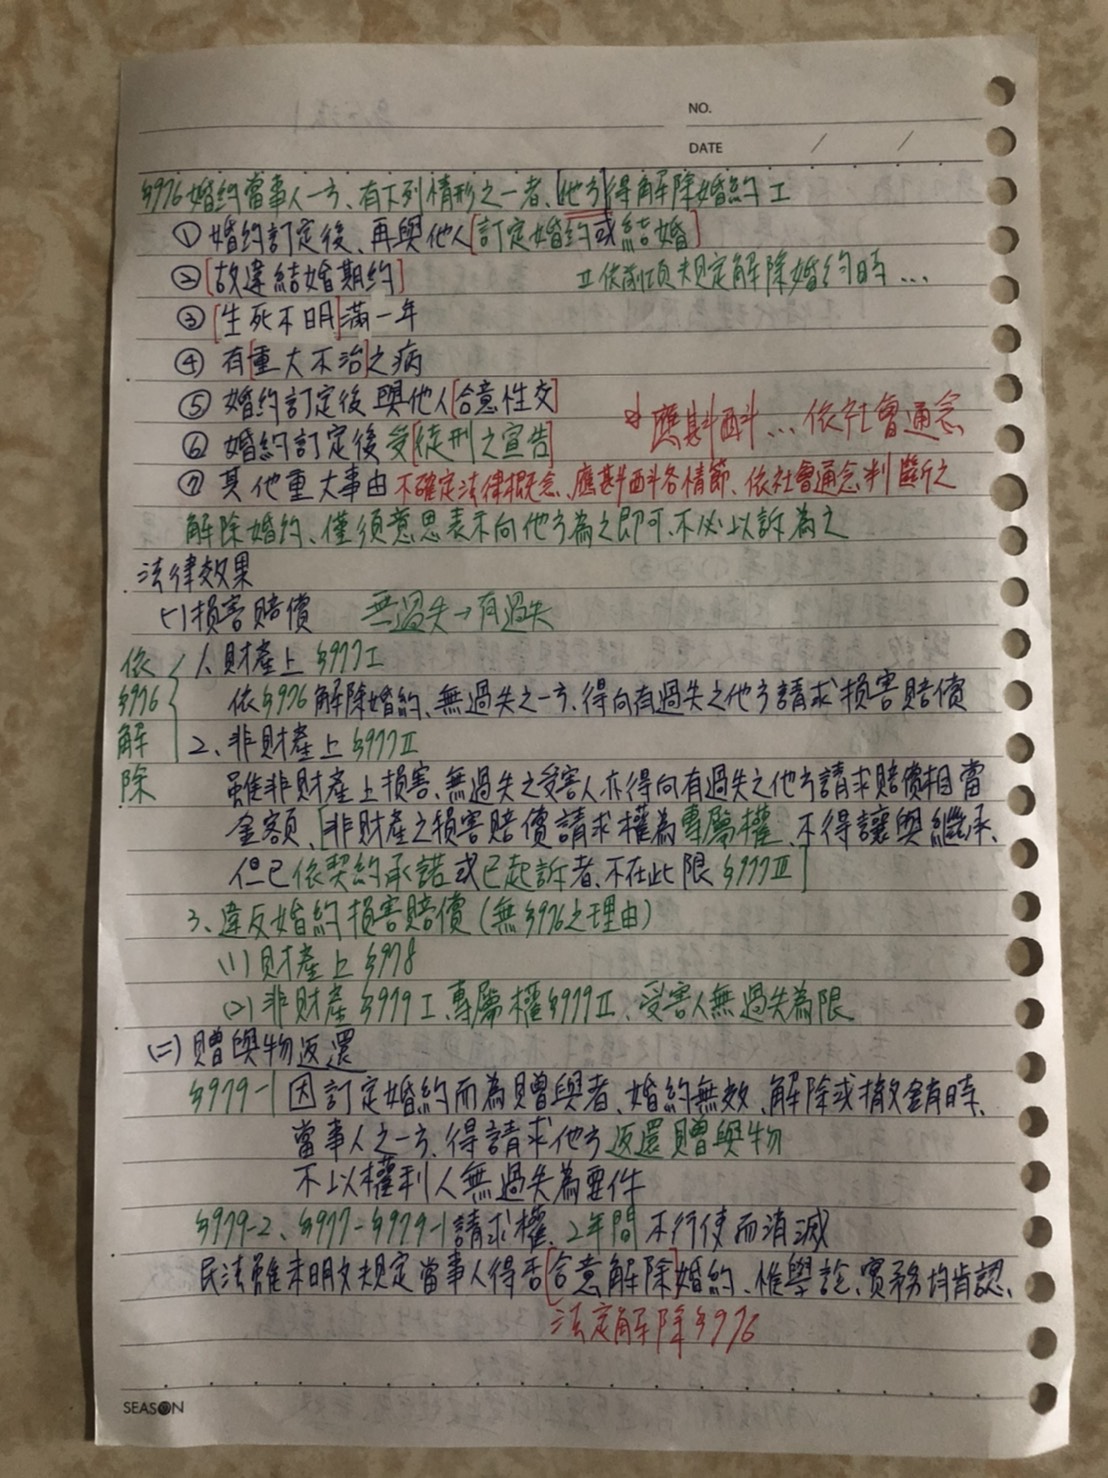 NO.
DATE / /
§976婚約當事人一方、有下列情形之一者、[他方]得解除婚約I
① 婚約訂定後、再與他人[訂定婚約或結婚]
②[故違結婚期約]
II依前項規定解除婚約時...
③[生死不明]滿一年
④ 有[重大不治]之病
⑤ 婚約訂定後與他人[合意性交]
⑥ 婚約訂定後受[徒刑之宣告]
應斟酌...依社會通念
⑦ 其他重大事由 不確定法律概念、應斟酌各情節、依社會通念判斷之
解除婚約、僅須意思表示向他方為之即可、不必以訴為之
法律效果
(一)損害賠償 無過失→有過失
依§976解除
1、財產上 §977I
依§976解除婚約、無過失之一方、得向有過失之他方請求損害賠償
2、非財產上 §977II
雖非財產上損害、無過失之受害人亦得向有過失之他方請求賠償相當
金額、[非財產之損害賠償請求權為專屬權、不得讓與繼承、
但已依契約承諾或已起訴者、不在此限 §977III]
3、違反婚約損害賠償(無§976之理由)
(1)財產上 §978
(2)非財產 §979 I、專屬權§979 II、受害人無過失為限
(二)贈與物返還
§979-1 因訂定婚約而為贈與者、婚約無效、解除或撤銷時、
當事人之一方、得請求他方返還贈與物
不以權利人無過失為要件
§979-2、§977-§979-1請求權、2年間不行使而消滅
民法雖未明文規定當事人得否[合意解除]婚約、惟學說、實務均肯認、
法定解除§976
SEASON